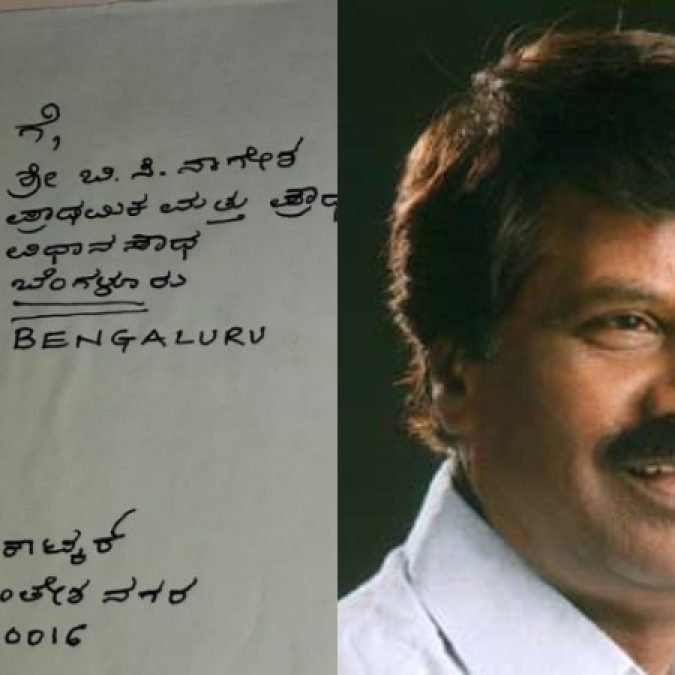 ಗೆ,
ಶ್ರೀ ಬಿ. ಸಿ. ನಾಗೇಶ
ಪ್ರಾಥಮಿಕ ಮತ್ತು ಪ್ರಾಥ
ವಿಧಾನ ಸಾಧ
ಬೆಂಗಳೂರು
BENGALURU
ಕಾಟ್ಕರ್
ಂತೇಶ ನಗರ
0016